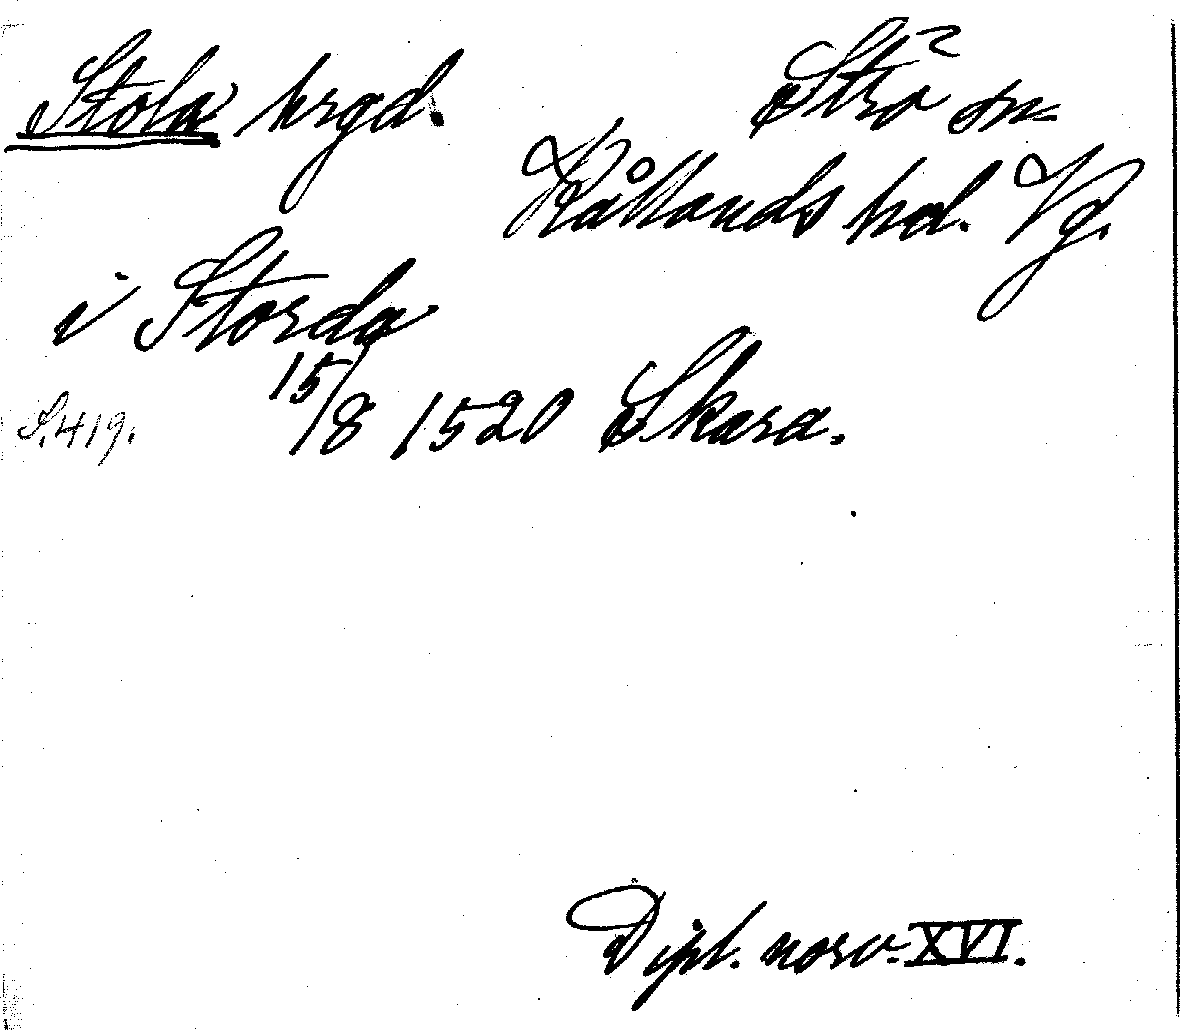 Stola hrgd. Strö sn
Kållands hd. Vg.
i Storda
S.419. 15/8 1520 Skara.
Dipl. norv. XVI.